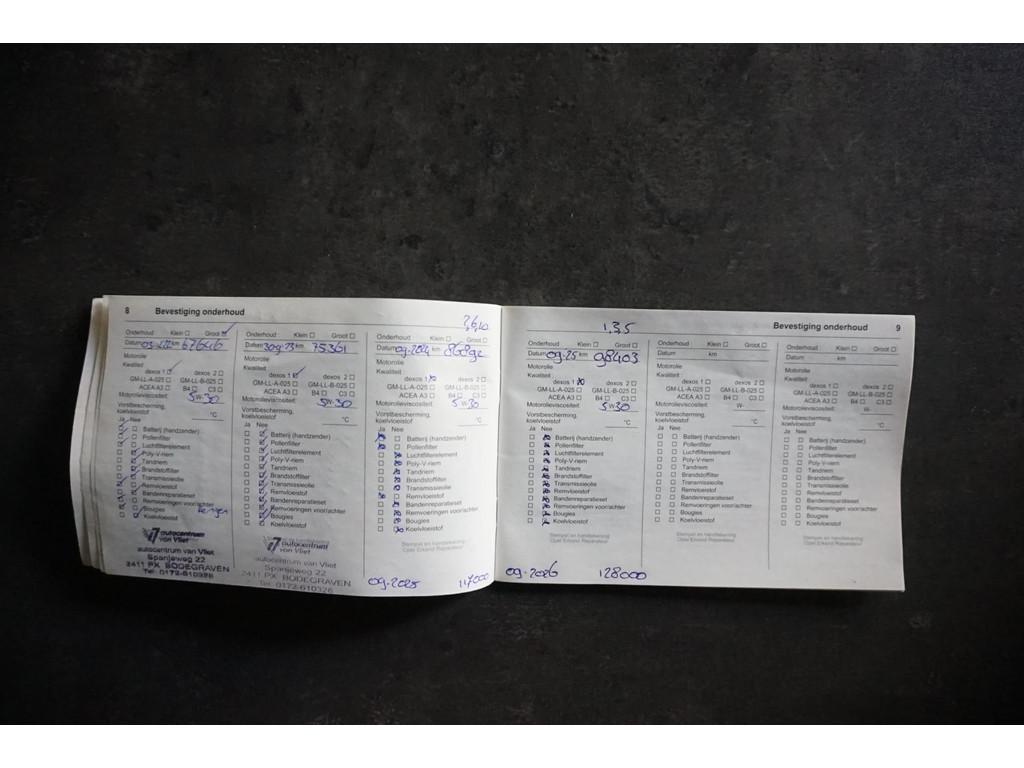 8 Bevestiging onderhoud
Onderhoud Klein Groot
Datum km 67646
Motorolie
Kwaliteit
dexos 1 dexos 2
GM-LL-A-025 GM-LL-B-025
ACEA A3 B4 C3
Motorolieviscositeit 5W-30
Vorstbescherming, koelvloeistof °C
Ja Nee
Batterij (handzender)
Pollenfilter
Luchtfilterelement
Poly-V-riem
Tandriem
Brandstoffilter
Transmissieolie
Remvloeistof
Bandenreparatieset
Remvoeringen voor/achter
Bougies
Koelvloeistof
autocentrum van Vliet
autocentrum van Vliet
Spanjeweg 22
2411 PX BODEGRAVEN
Tel. 0172-610326
Onderhoud Klein Groot
Datum km 75361
Motorolie
Kwaliteit
dexos 1 dexos 2
GM-LL-A-025 GM-LL-B-025
ACEA A3 B4 C3
Motorolieviscositeit: 5W-30
Vorstbescherming, koelvloeistof °C
Ja Nee
Batterij (handzender)
Pollenfilter
Luchtfilterelement
Poly-V-riem
Tandriem
Brandstoffilter
Transmissieolie
Remvloeistof
Bandenreparatieset
Remvoeringen voor/achter
Bougies
Koelvloeistof
autocentrum van Vliet
autocentrum van Vliet
Spanjeweg 22
2411 PX BODEGRAVEN
Tel. 0172-610326
Onderhoud Klein Groot
Datum 09-2024 km 86892
Motorolie
Kwaliteit
dexos 1 dexos 2
GM-LL-A-025 GM-LL-B-025
ACEA A3 B4 C3
Motorolieviscositeit: 5W-30
Vorstbescherming, koelvloeistof °C
Ja Nee
Batterij (handzender)
Pollenfilter
Luchtfilterelement
Poly-V-riem
Tandriem
Brandstoffilter
Transmissieolie
Remvloeistof
Bandenreparatieset
Remvoeringen voor/achter
Bougies
Koelvloeistof
09-2025 117000
1,3,5
Bevestiging onderhoud 9
Onderhoud Klein Groot
Datum 09-25 km 98403
Motorolie
Kwaliteit:
dexos 1 dexos 2
GM-LL-A-025 GM-LL-B-025
ACEA A3 B4 C3
Motorolieviscositeit: 5W-30
Vorstbescherming, koelvloeistof °C
Ja Nee
Batterij (handzender)
Pollenfilter
Luchtfilterelement
Poly-V-riem
Tandriem
Brandstoffilter
Transmissieolie
Remvloeistof
Bandenreparatieset
Remvoeringen voor/achter
Bougies
Koelvloeistof
Stempel en handtekening
Opel Erkend Reparateur
09-2026 128000
Onderhoud Klein Groot
Datum km
Motorolie
Kwaliteit:
dexos 1 dexos 2
GM-LL-A-025 GM-LL-B-025
ACEA A3 B4 C3
Motorolieviscositeit: W-
Vorstbescherming, koelvloeistof °C
Ja Nee
Batterij (handzender)
Pollenfilter
Luchtfilterelement
Poly-V-riem
Tandriem
Brandstoffilter
Transmissieolie
Remvloeistof
Bandenreparatieset
Remvoeringen voor/achter
Bougies
Koelvloeistof
Stempel en handtekening
Opel Erkend Reparateur
Onderhoud Klein Groot
Datum km
Motorolie
Kwaliteit:
dexos 1 dexos 2
GM-LL-A-025 GM-LL-B-025
ACEA A3 B4 C3
Motorolieviscositeit: W-
Vorstbescherming, koelvloeistof °C
Ja Nee
Batterij (handzender)
Pollenfilter
Luchtfilterelement
Poly-V-riem
Tandriem
Brandstoffilter
Transmissieolie
Remvloeistof
Bandenreparatieset
Remvoeringen voor/achter
Bougies
Koelvloeistof
Stempel en handtekening
Opel Erkend Reparateur